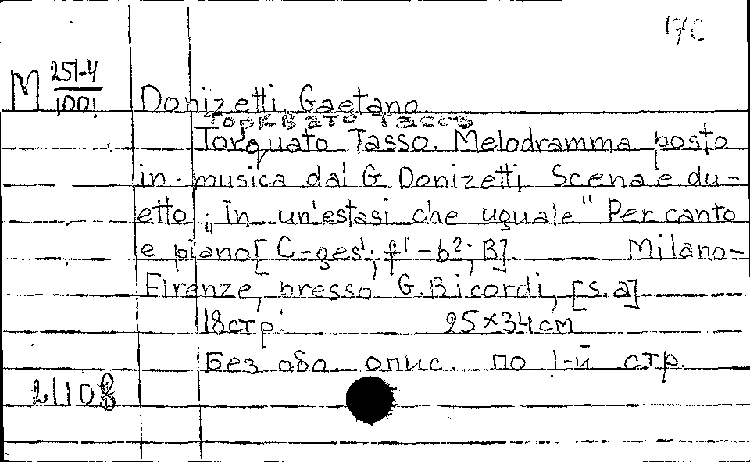 17С
M 251-4/1001
Donizetti, Gaetano.
Торквато Тассо
Torquato Tasso. Melodramma posto
in musica dal G. Donizetti. Scena e du-
etto „In un'estasi che uguale" Per canto
e piano [C-ges¹; f¹-b²; B]. Milano-
Firenze, presso G. Ricordi, [s.a]
18 стр. 25×34 cm
Без обл. опис. по 1-й стр.
21108